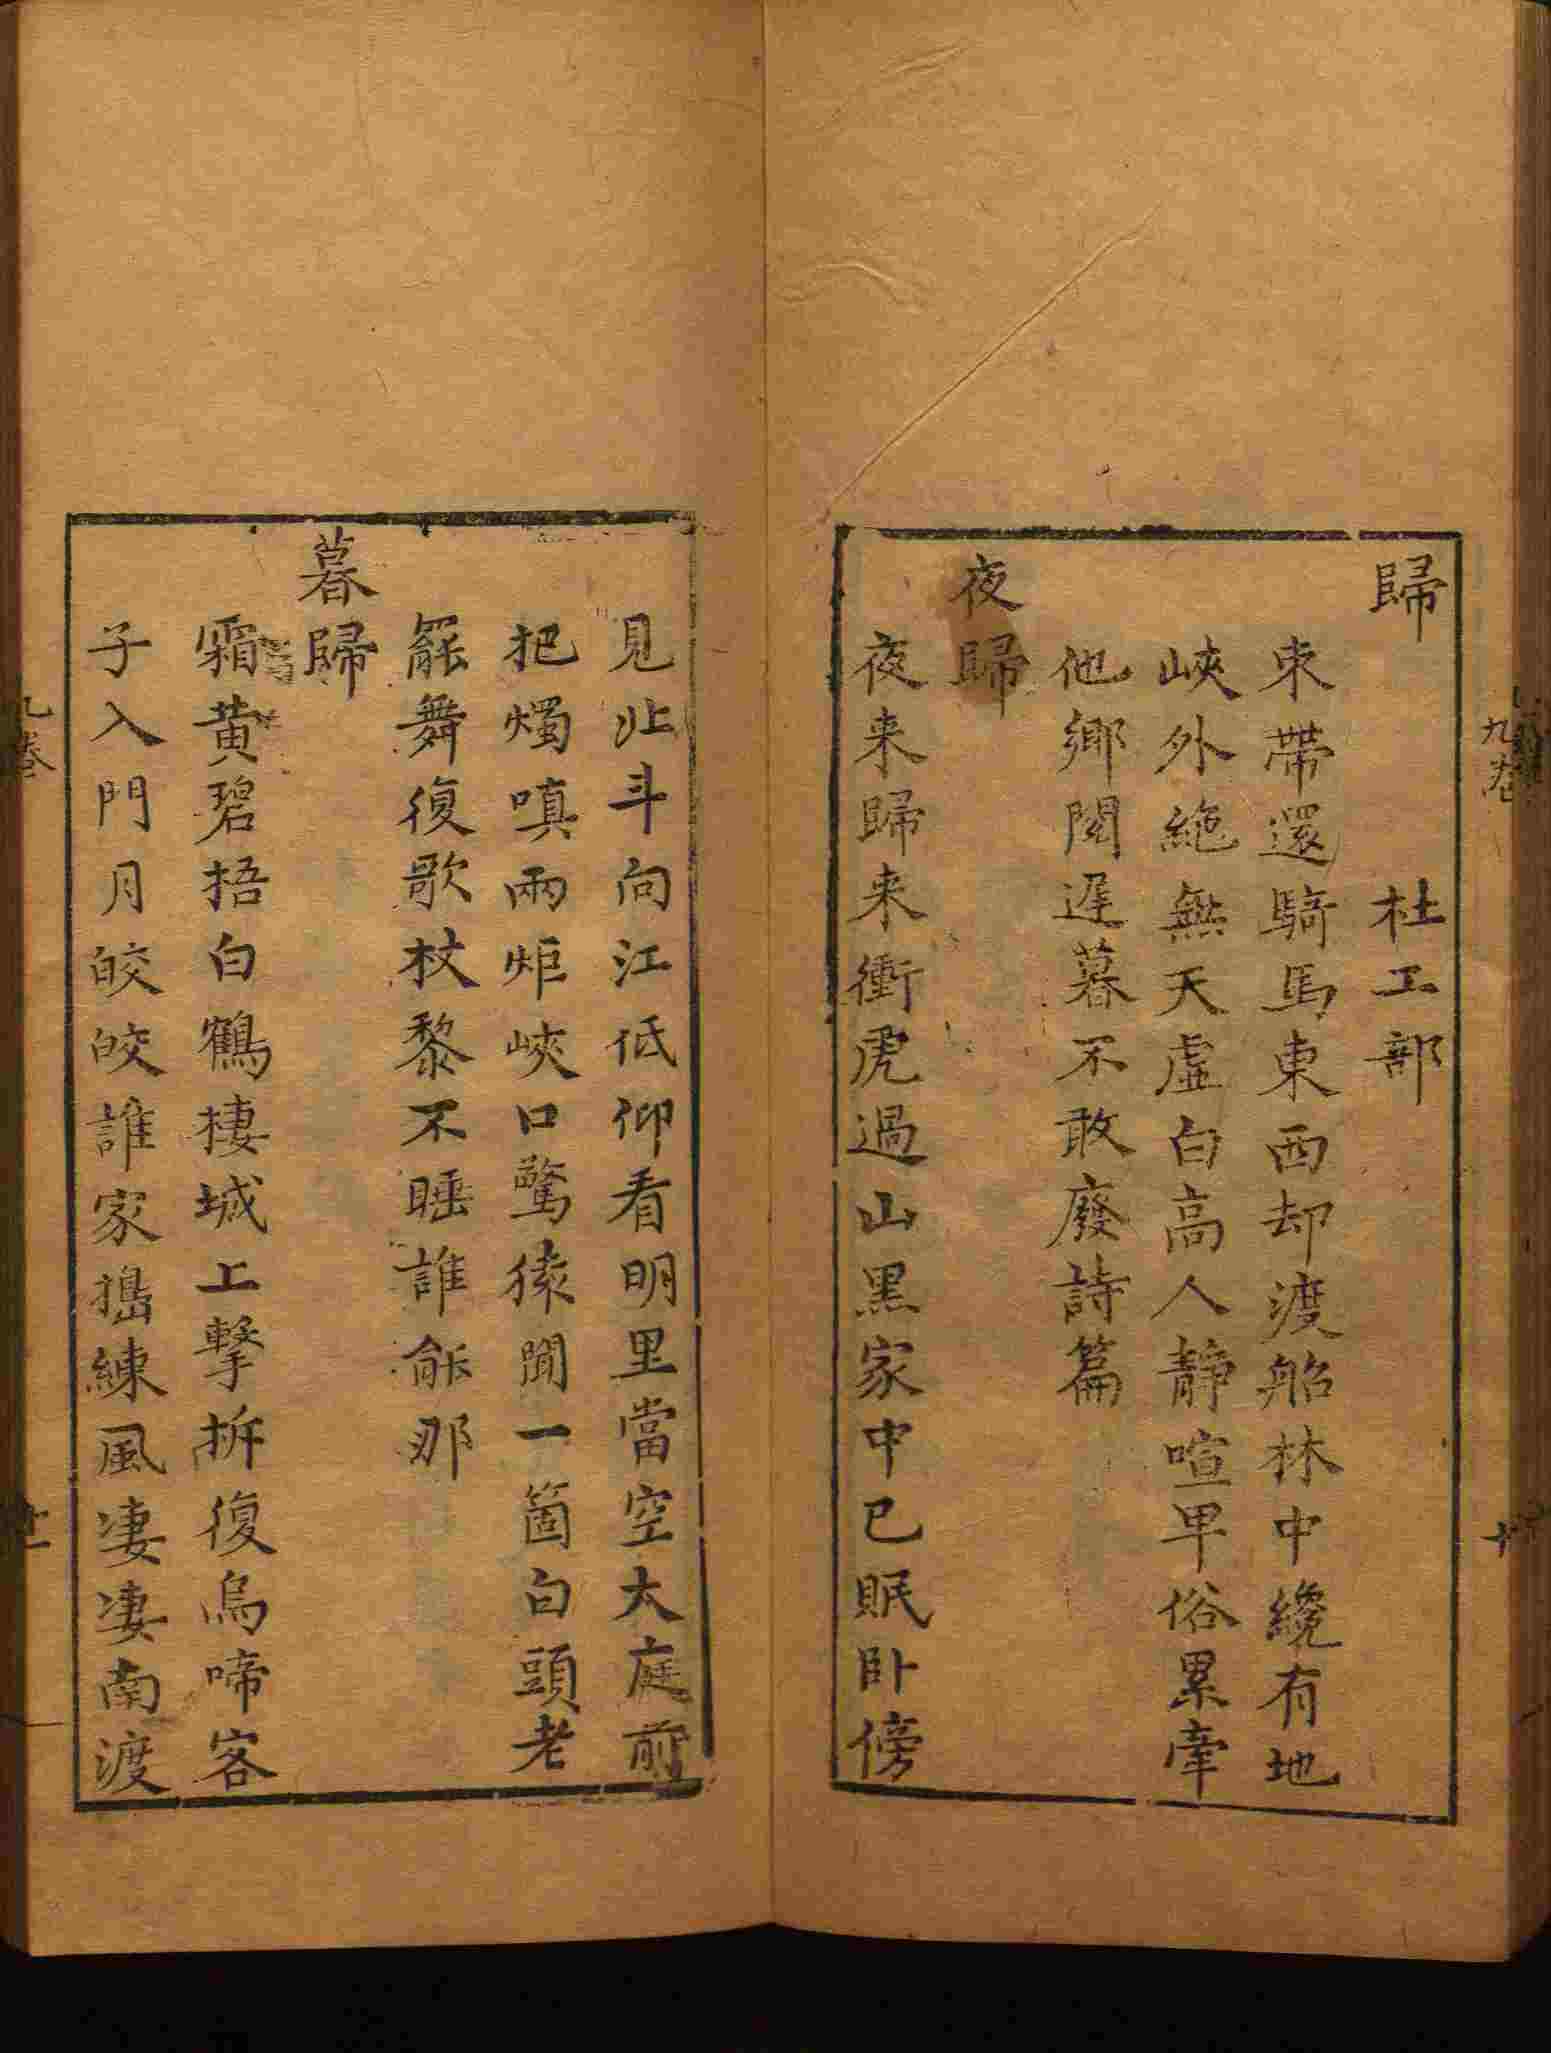 歸　杜工部
束帶還騎馬東西却渡船林中纔有地
峽外絶無天虚白高人靜喧卑俗累牽
他鄉閱遲暮不敢廢詩篇
夜歸
夜来歸来衝虎過山黑家中已眠卧傍
見北斗向江低仰看明星當空大庭前
把燭嗔兩炬峽口驚猿聞一箇白頭老
罷舞復歌杖藜不睡誰能那
暮歸
霜黄碧梧白鶴棲城上擊柝復烏啼客
子入門月皎皎誰家搗練風凄凄南渡
九卷
九卷
十